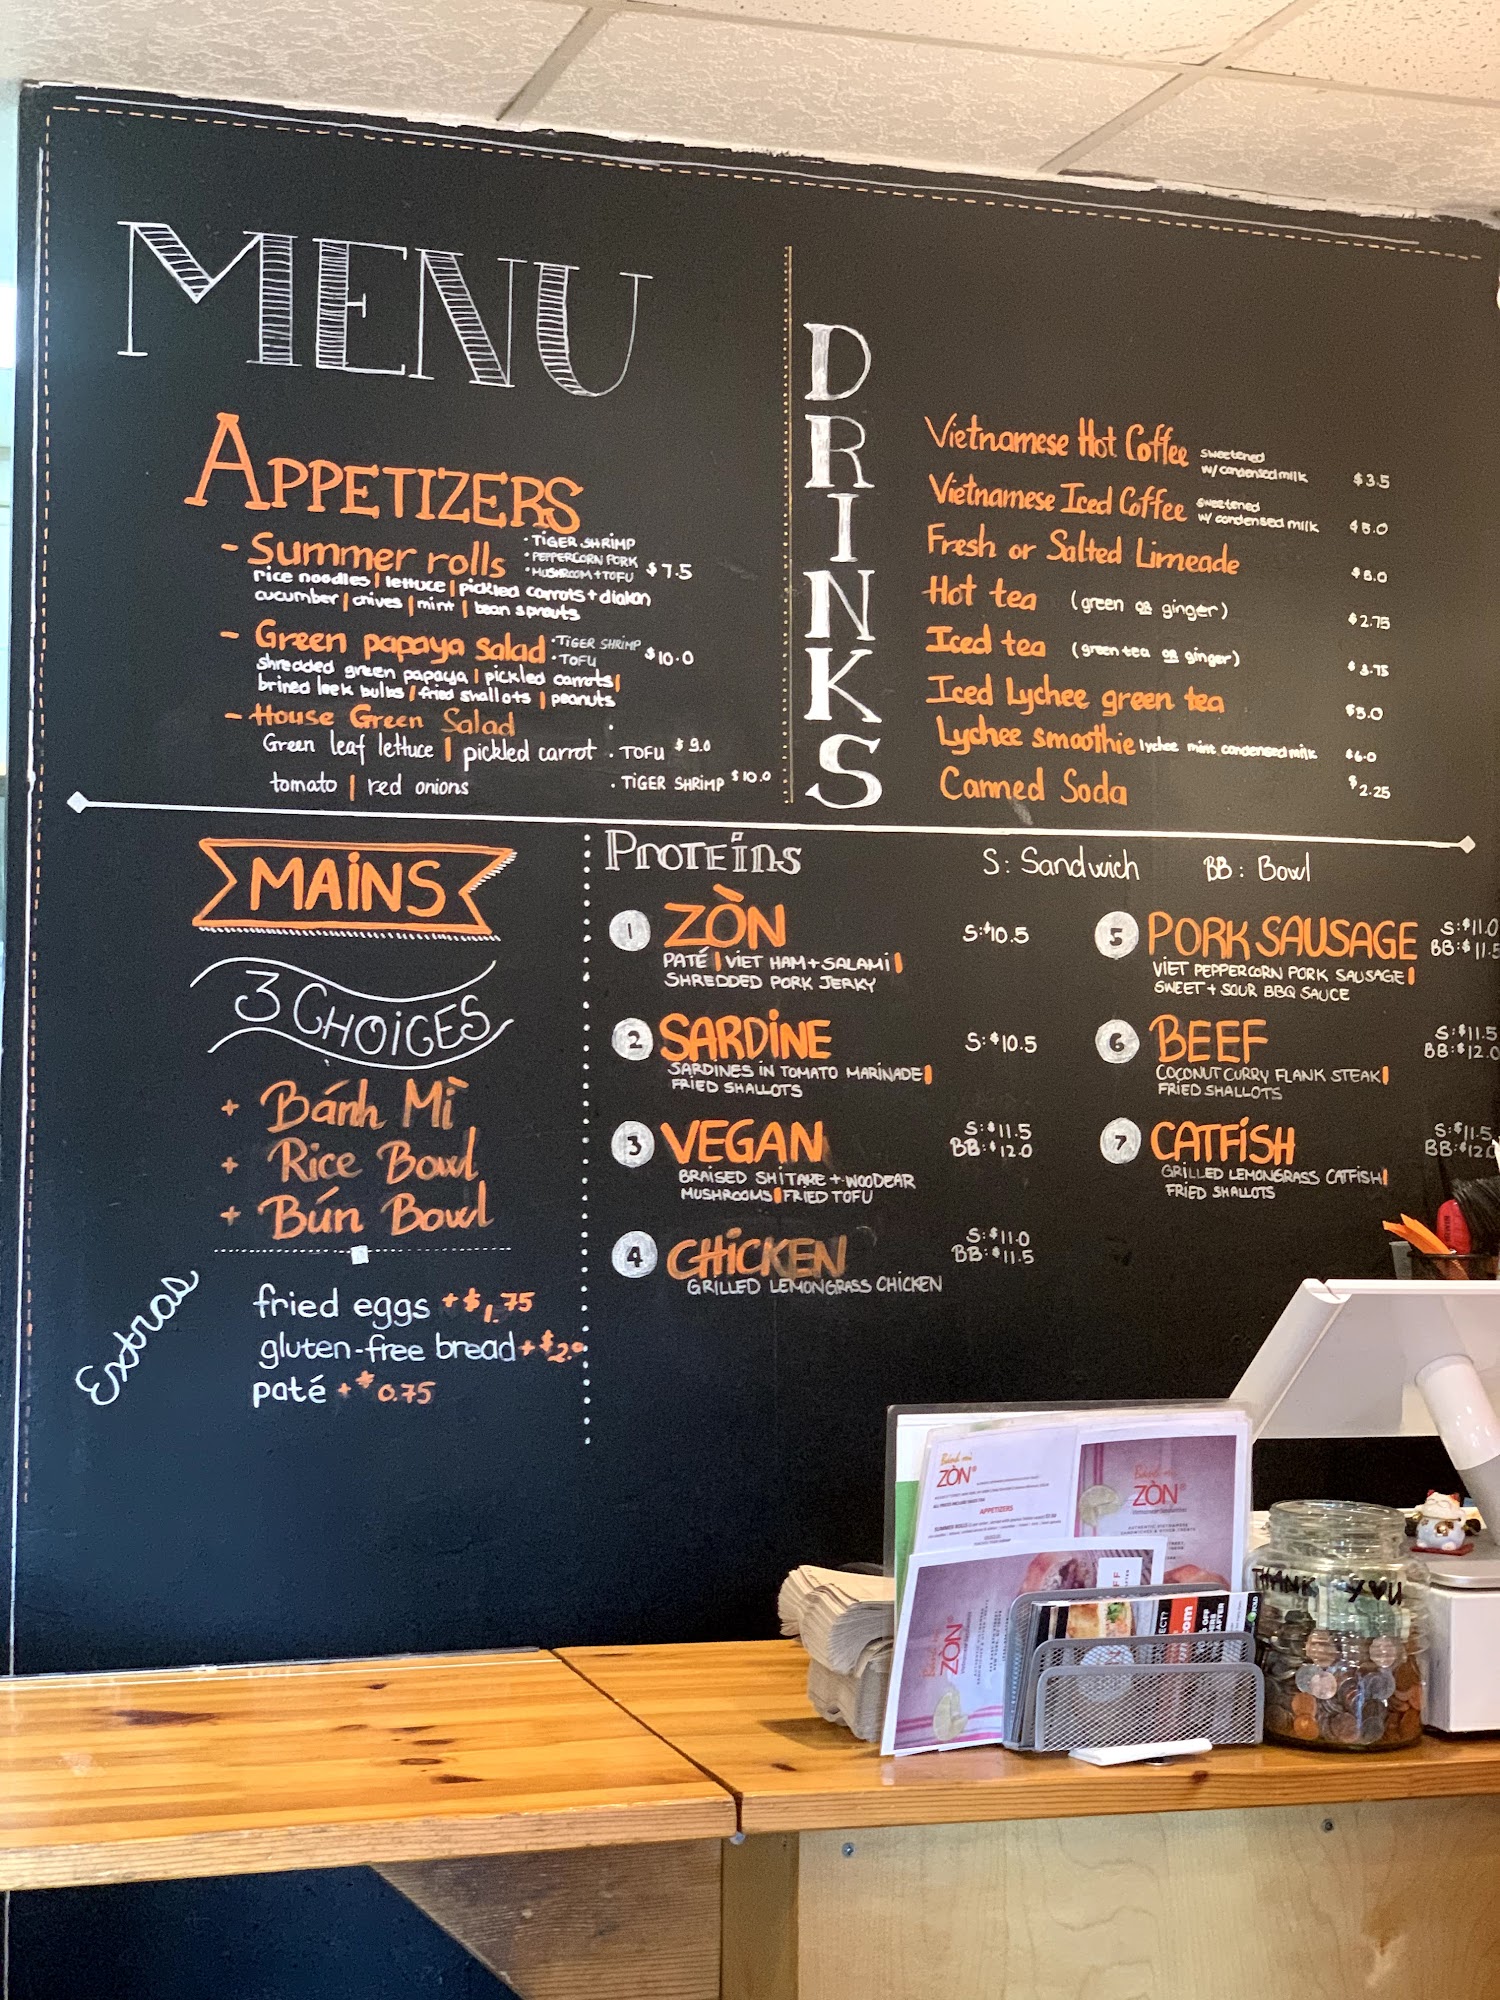 MENU
APPETIZERS
- Summer rolls
· TIGER SHRIMP
· PEPPERCORN PORK
· MUSHROOM + TOFU
$7.5
rice noodles | lettuce | pickled carrots + diakon
cucumber | chives | mint | bean sprouts
- Green papaya salad
· TIGER SHRIMP
· TOFU
$10.0
shredded green papaya | pickled carrots |
brined leek bulbs | fried shallots | peanuts
- House Green Salad
Green leaf lettuce | pickled carrot · TOFU $9.0
tomato | red onions · TIGER SHRIMP $10.0
DRINKS
Vietnamese Hot Coffee sweetened w/ condensed milk $3.5
Vietnamese Iced Coffee sweetened w/ condensed milk $5.0
Fresh or Salted Limeade $5.0
Hot tea (green or ginger) $2.75
Iced tea (green tea or ginger) $3.75
Iced Lychee green tea $5.0
Lychee smoothie lychee mint condensed milk $6.0
Canned Soda $2.25
MAINS
3 CHOICES
+ Bánh Mì
+ Rice Bowl
+ Bún Bowl
Extras
fried eggs +$1.75
gluten-free bread +$2.0
paté +$0.75
PROTEINS
S: Sandwich BB: Bowl
1 ZÒN S:$10.5
PATÉ | VIET HAM + SALAMI |
SHREDDED PORK JERKY
2 SARDINE S:$10.5
SARDINES IN TOMATO MARINADE |
FRIED SHALLOTS
3 VEGAN S:$11.5
BB:$12.0
BRAISED SHITAKE + WOODEAR
MUSHROOMS | FRIED TOFU
4 CHICKEN S:$11.0
BB:$11.5
GRILLED LEMONGRASS CHICKEN
5 PORK SAUSAGE S:$11.0
BB:$11.5
VIET PEPPERCORN PORK SAUSAGE |
SWEET + SOUR BBQ SAUCE
6 BEEF S:$11.5
BB:$12.0
COCONUT CURRY FLANK STEAK |
FRIED SHALLOTS
7 CATFISH S:$11.5
BB:$12.0
GRILLED LEMONGRASS CATFISH |
FRIED SHALLOTS
Bánh mì
ZÒN
APPETIZERS
Bánh mì
ZÒN
Bánh mì
ZÒN
THANK YOU